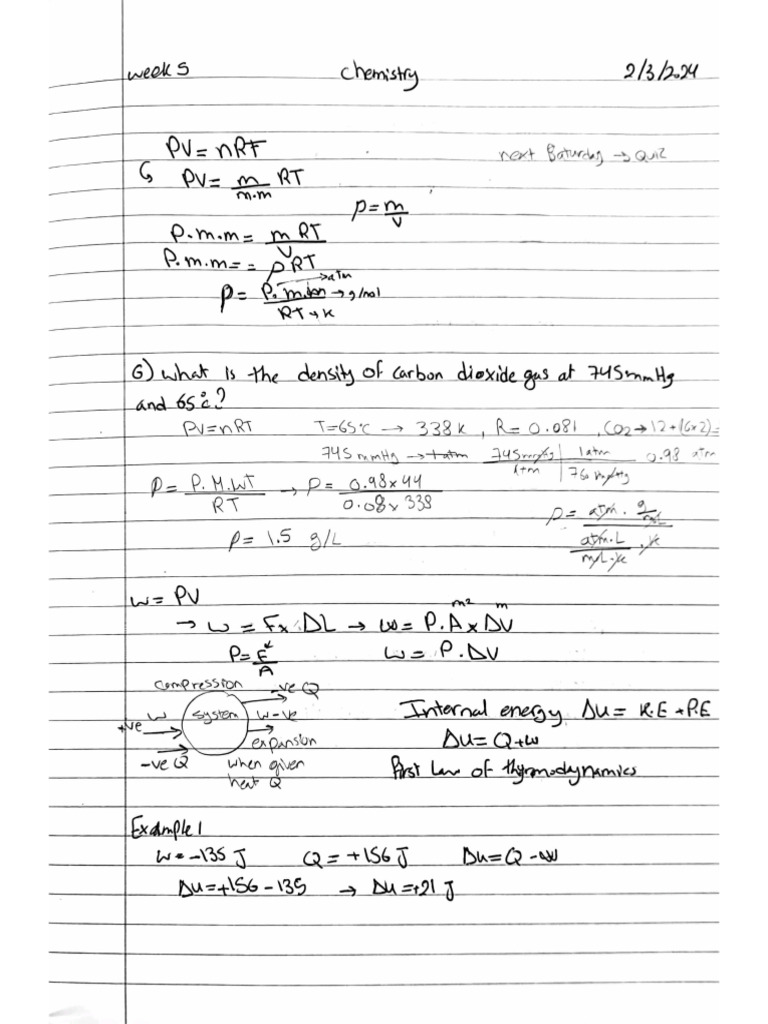 week 5 Chemistry 2/3/2024
PV = nRT
next Saturday → Quiz
↳ PV = m/m.m RT
ρ = m/V
P.m.m = m RT/V
P.m.m = = ρRT
ρ = P. m.m → g/mol / RT → K
→ atm
6) What is the density of carbon dioxide gas at 745 mmHg
and 65°c?
PV = nRT T = 65°C → 338 K, R = 0.081, CO2 → 12+(6x2)=
745 mmHg → atm 745 mmHg/atm | 1 atm/760 mmHg 0.98 atm
ρ = P. M.WT/RT → ρ = 0.98 x 44/0.08 x 338
ρ = atm. g/mol / atm.L/mol.K . K
ρ = 1.5 g/L
w = PV
→ w = F x ΔL → w = P.A x ΔV
m² m
P = F/A w = P.ΔV
compression -ve Q
+ve w system w -ve
expansion
-ve Q when given
heat Q
Internal energy ΔU = K.E + P.E
ΔU = Q + w
First Law of thyrmodynamics
Example 1
w = -135 J Q = +156 J ΔU = Q - w
ΔU = +156 - 135 → ΔU = +21 J